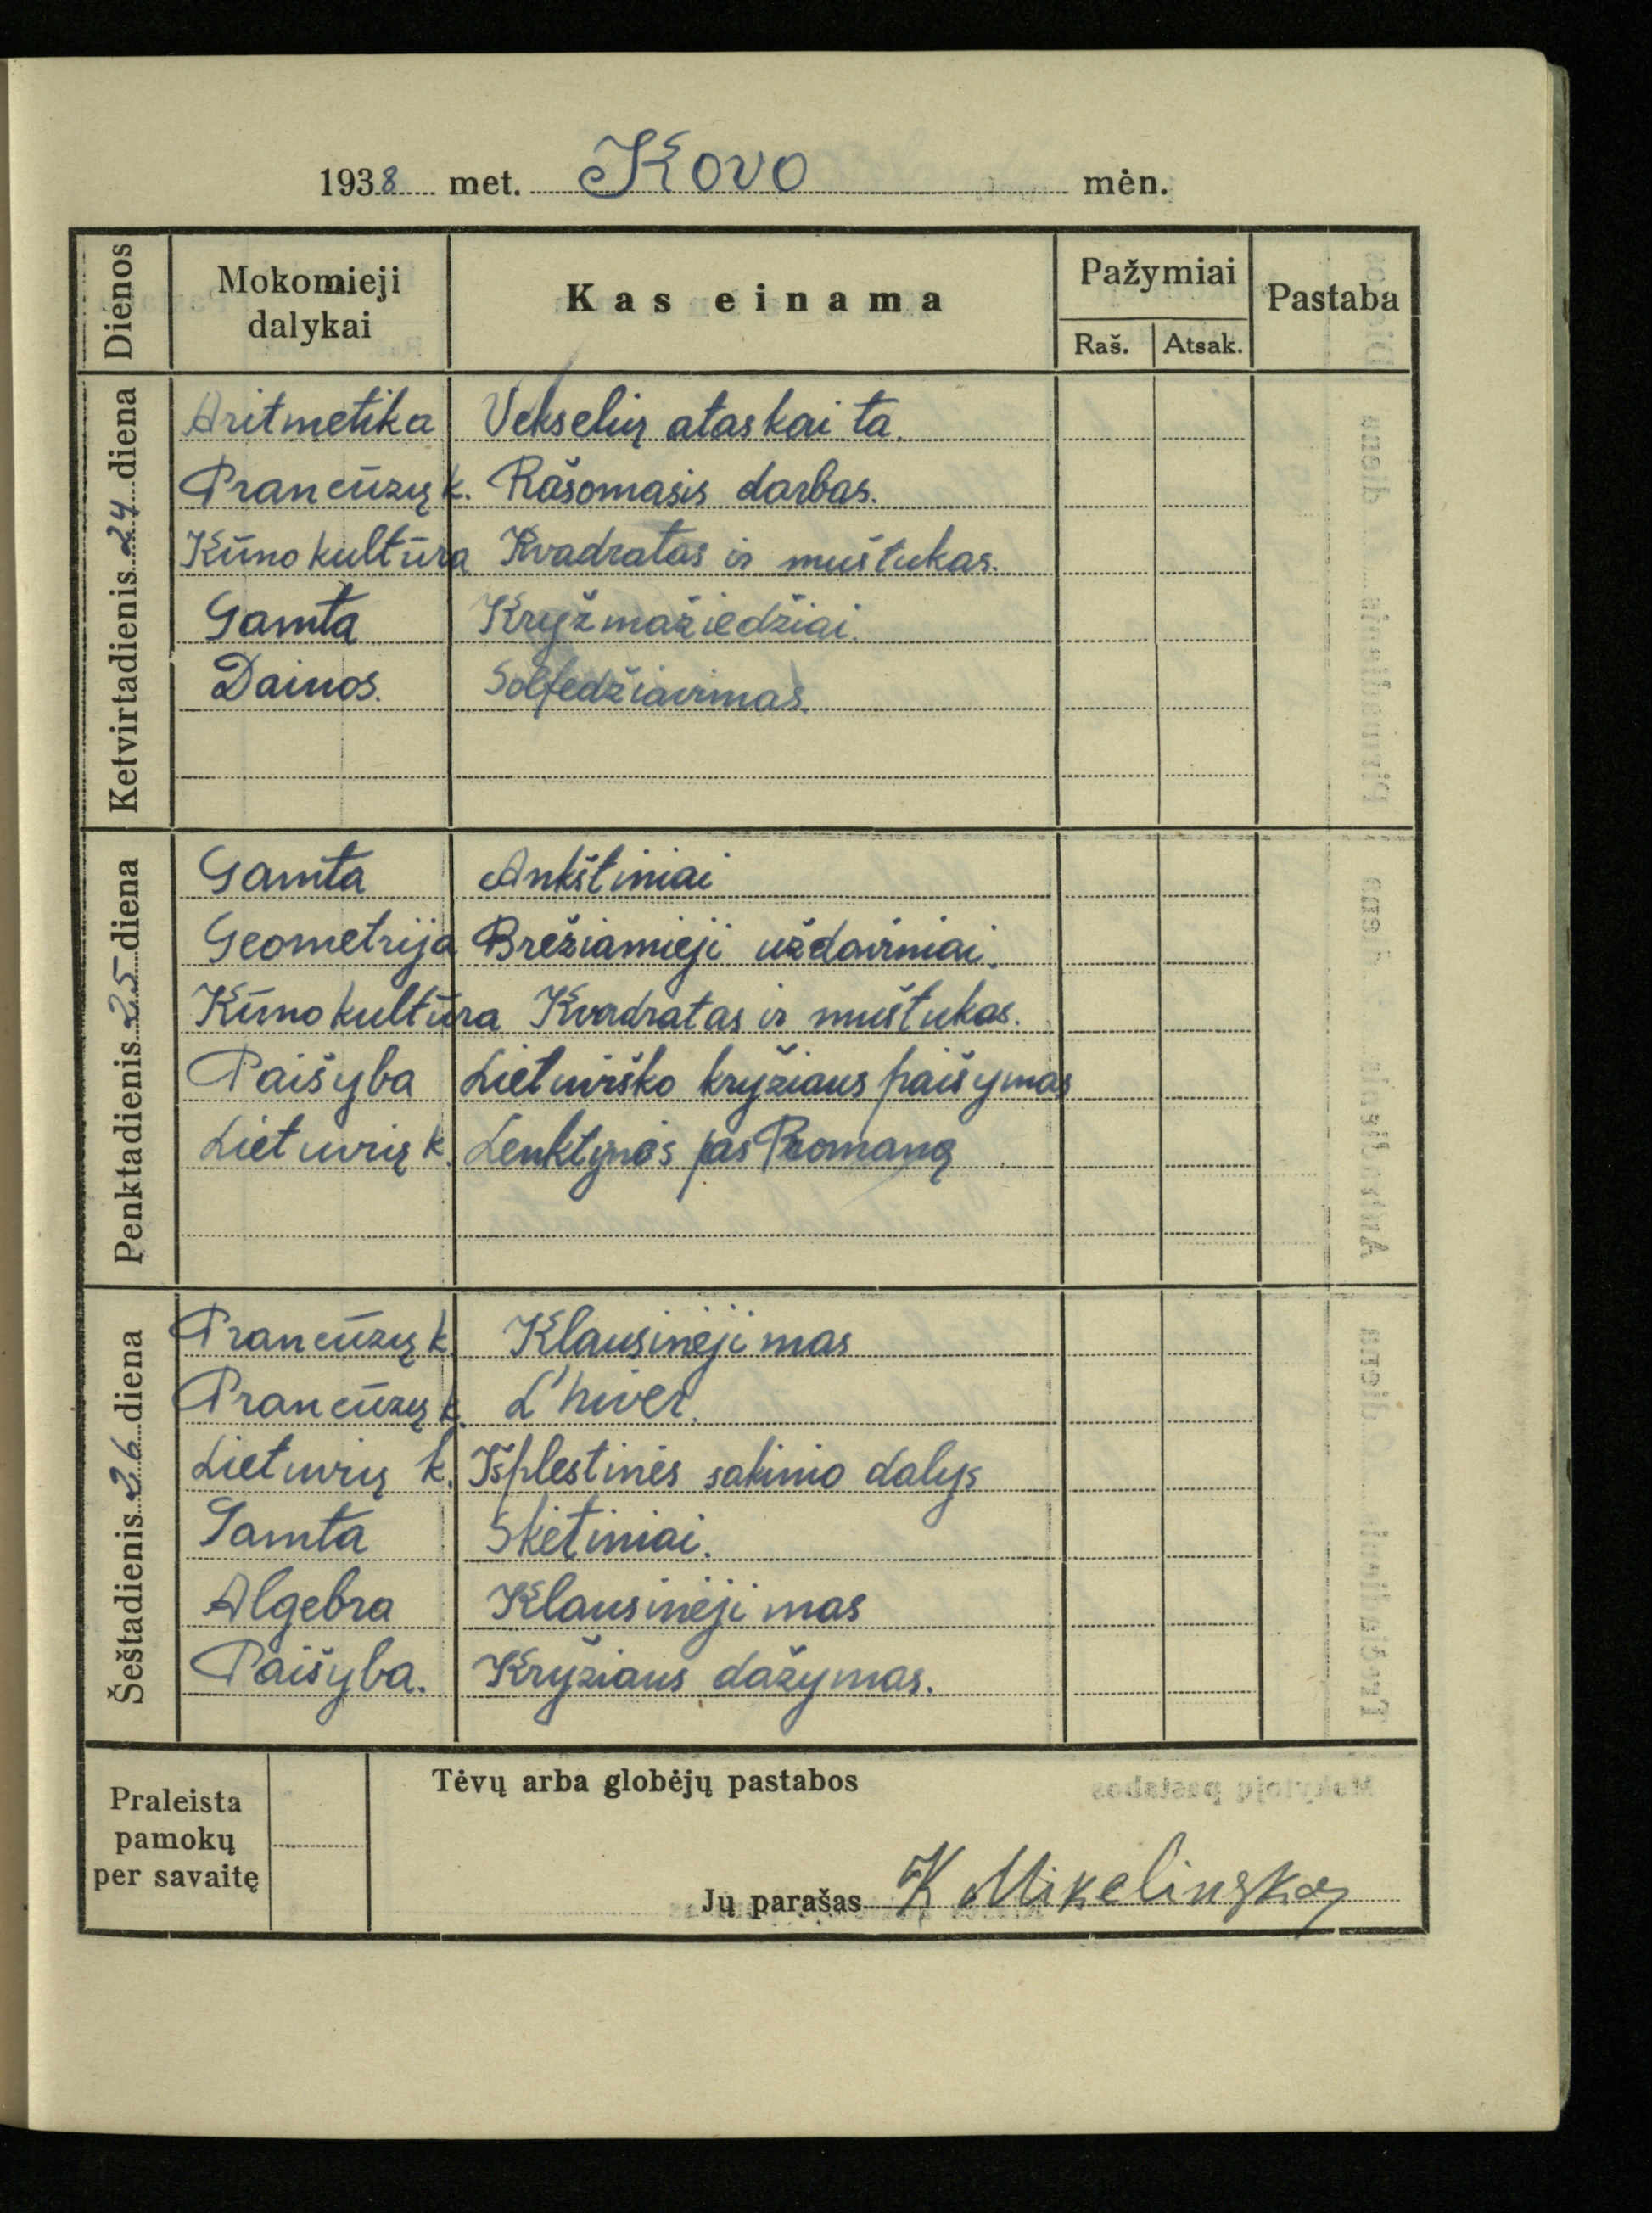 1938 met. Kovo mėn.
Dienos Mokomieji dalykai Kas einama Pažymiai Pastaba
Raš. Atsak.
Ketvirtadienis 24 diena
Aritmetika Vekselių ataskaita.
Prancūzų k. Rašomasis darbas.
Kūno kultūra Kvadratas ir muštukas.
Gamta Kryžmažiedžiai.
Dainos. Solfedžiavimas.
Penktadienis 25 diena
Gamta Ankštiniai
Geometrija Brėžiamieji uždaviniai.
Kūno kultūra Kvadratas ir muštukas.
Paišyba Lietuviško kryžiaus paišymas
Lietuvių k. Lenktynės pas Romaną
Šeštadienis 26 diena
Prancūzų k. Klausinėjimas
Prancūzų k. L'hiver.
Lietuvių k. Išplėstinės sakinio dalys
Gamta Skėtiniai.
Algebra Klausinėjimas
Paišyba. Kryžiaus dažymas.
Praleista
pamokų
per savaitę
Tėvų arba globėjų pastabos
Jų parašas K Mikelinskas